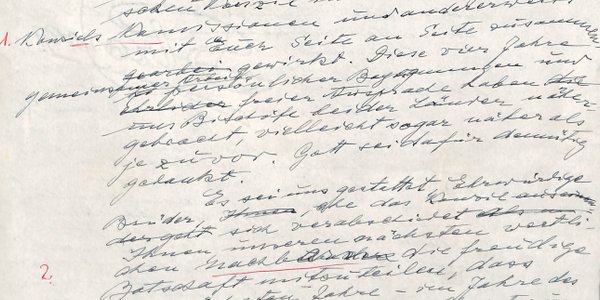 schen Konzil in
1. Konzils Kommissionen und anderweitig
mit Euer Seite an Seite zusammen
gearbei gewirkt. Diese vier Jahre
gemeinsamer persönlicher Begegnungen und
Ehrlicher freier Aussprache haben
uns Bischöfe beider Länder näher-
gebracht, vielleicht sogar näher als
je zuvor. Gott sei dafür demütig
gedankt.
Es sei uns gestattet, Ehrwürdige
Brüder, Ihnen, ehe das Konzil auseinan-
dergeht sich verabschiedet
Ihnen unseren nächsten westli-
2. chen Nachbarn die freudige
Botschaft mitzuteilen, dass
Jahre - im Jahre des